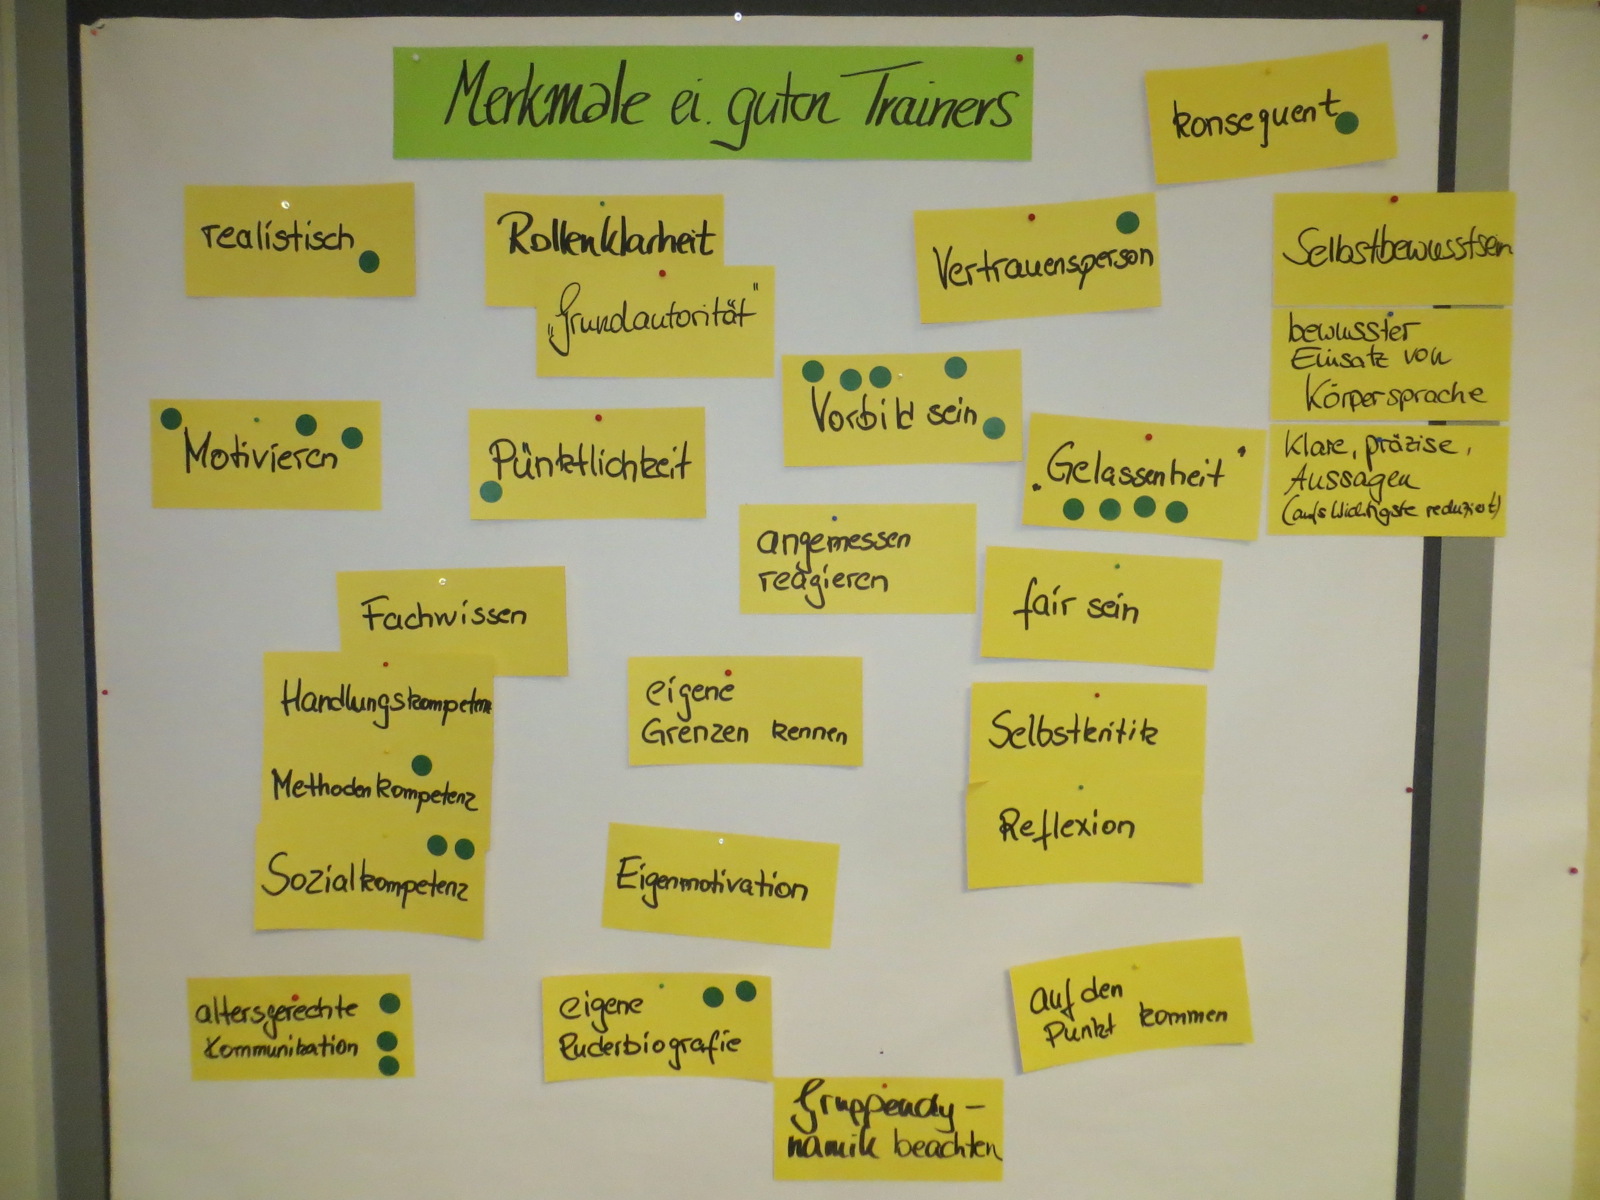 Merkmale ei. guten Trainers
konsequent
realistisch
Rollenklarheit
„Grundautorität"
Vertrauensperson
Selbstbewusstsein
bewusster
Einsatz von
Körpersprache
Klare, präzise,
Aussagen
(aufs Wichtigste reduziert)
Motivieren
Pünktlichkeit
Vorbild sein
„Gelassenheit"
angemessen
reagieren
fair sein
Fachwissen
Handlungskompetenz
Methodenkompetenz
Sozialkompetenz
eigene
Grenzen kennen
Selbstkritik
Reflexion
Eigenmotivation
altersgerechte
Kommunikation
eigene
Ruderbiografie
auf den
Punkt kommen
Gruppendy-
namik beachten